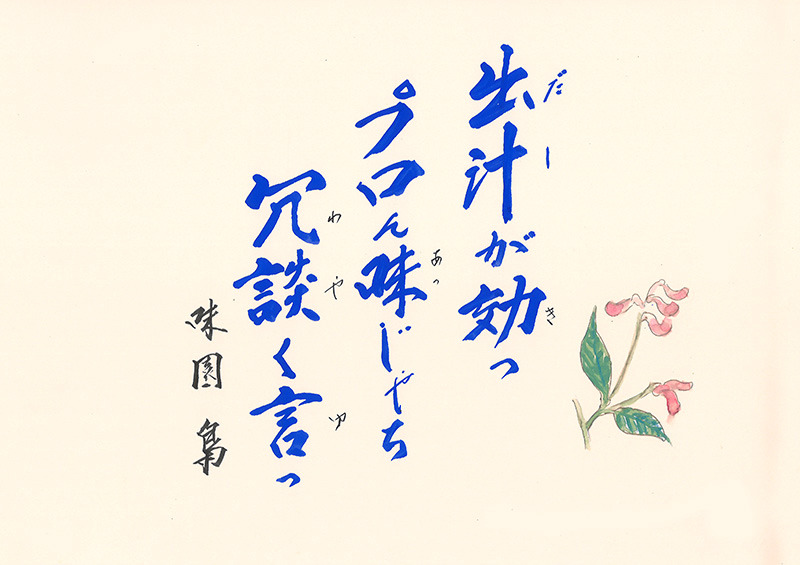 だしき
出汁が効っ
あっ
プロん味じゃち
わやゆ
冗談く言っ
味園